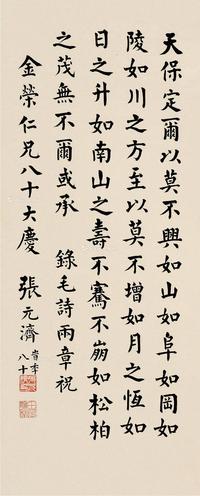 天保定爾以莫不興如山如阜如岡如
陵如川之方至以莫不增如月之恆如
日之升如南山之壽不騫不崩如松柏
之茂無不爾或承　錄毛詩兩章祝
金榮仁兄八十大慶　張元濟 時年
八十